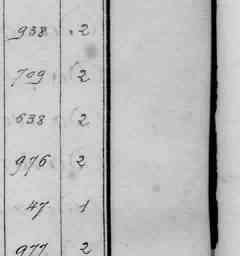 938 2
709 2
638 2
976 2
47 1
977 2